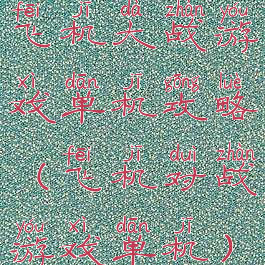 fēi jī dà zhàn yóu
飞机大战游
xì dān jī gōng lüè
戏单机攻略
fēi jī duì zhàn
（飞机对战
yóu xì dān jī
游戏单机）